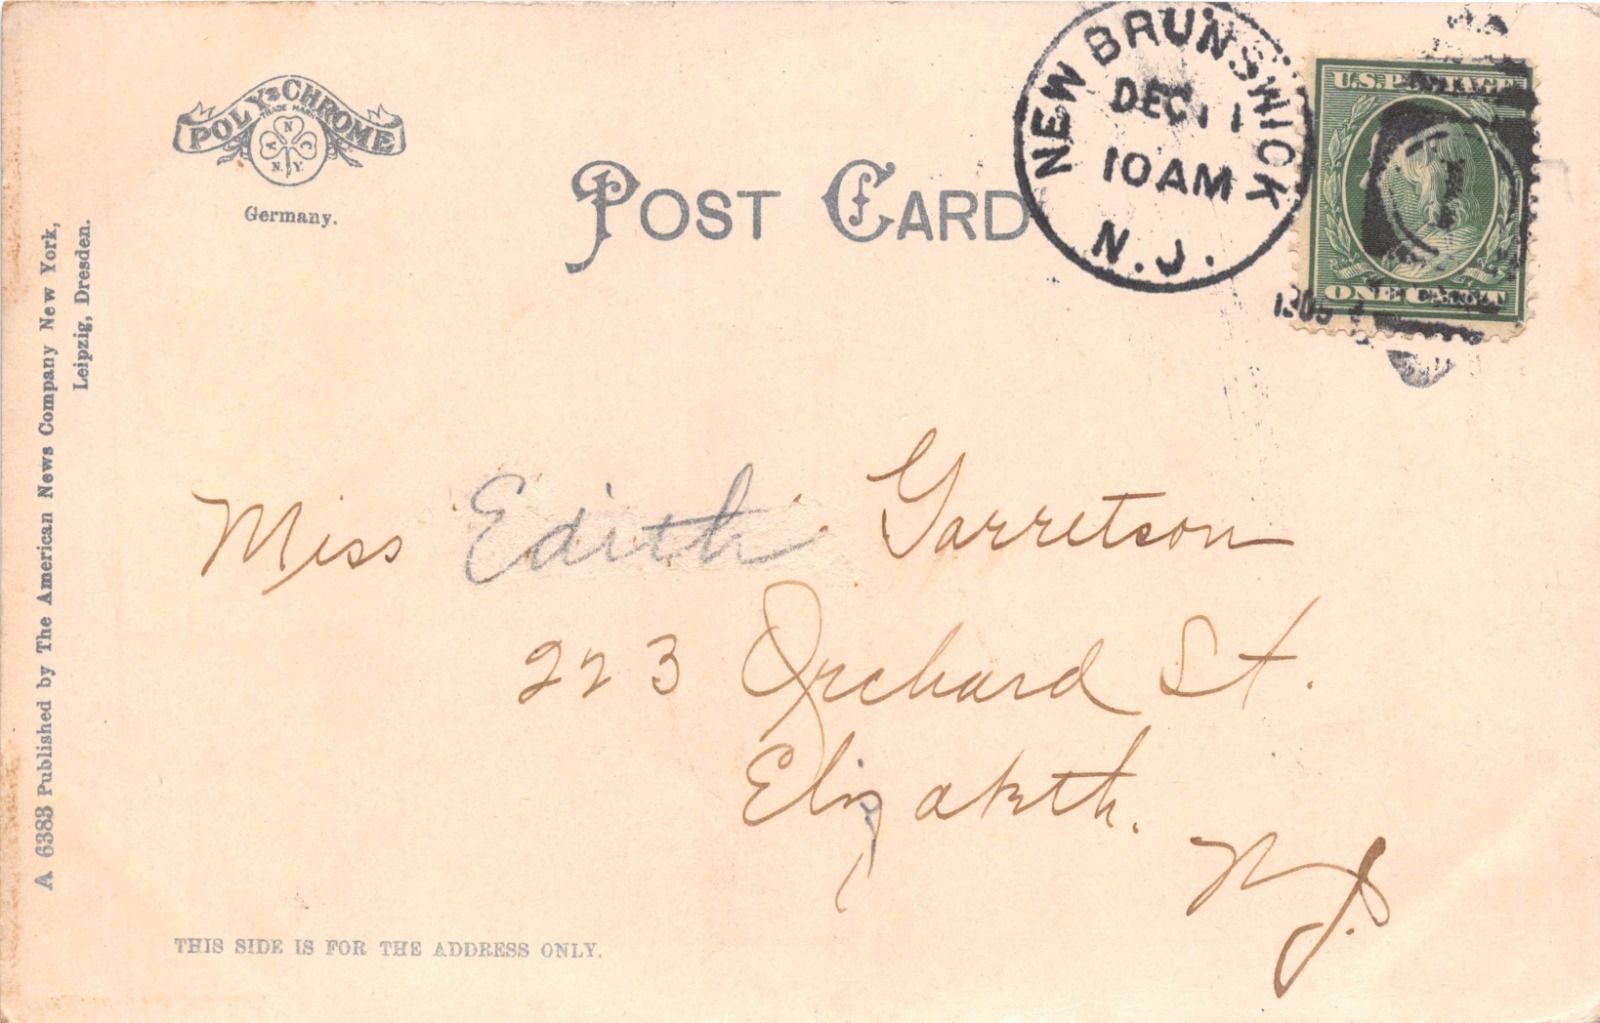 POLY-CHROME
TRADE MARK
A N C
N. Y.
Germany.
POST CARD
NEW BRUNSWICK
DEC 11
10 AM
N.J.
U.S. POSTAGE
ONE CENT
A 6383 Published by The American News Company New York,
Leipzig, Dresden.
Miss Edith Garretson
223 Orchard St.
Elizabeth.
N.J.
THIS SIDE IS FOR THE ADDRESS ONLY.